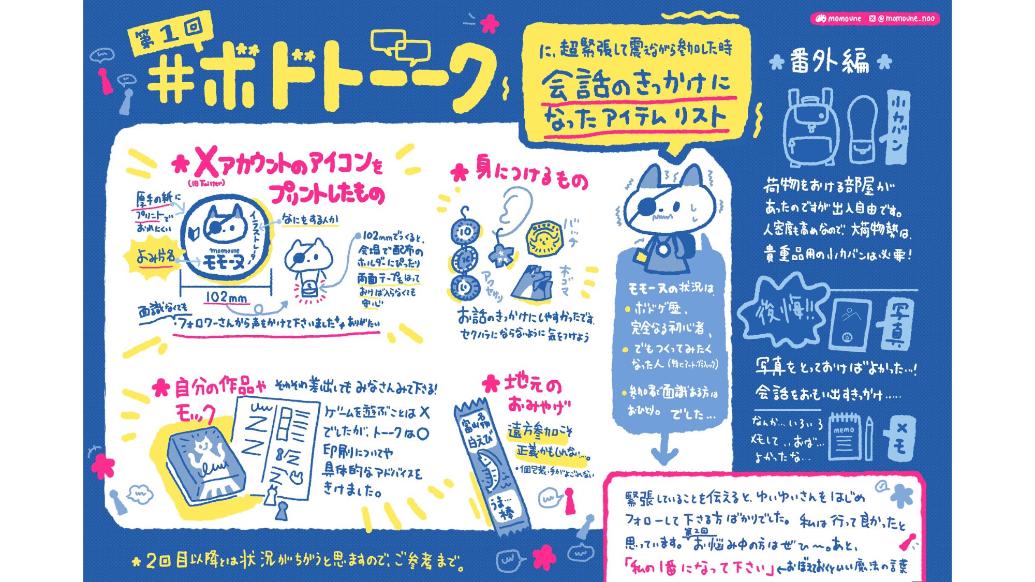 第1回
#ボドトーーク
に、超緊張して震えながら参加した時
会話のきっかけに
なったアイテムリスト
momovne @momovne_noo
*番外編*
*Xアカウントのアイコンを
(旧Twitter)
プリントしたもの
厚手の紙に
プリントで
おれにくい
よみ片名
イラストレーター
momovne
モモーヌ
なにをする人か
102mm
102mmでつくると、
会場で配布の
ホルダーにぴったり
両面テープをはって
おけば入らなくても
安心
面識なくても
・フォロワーさんから声をかけて下さいました ありがたい
*身につけるもの
10
10
アクセサリー
バッヂ
木ゴマ
お話のきっかけにしやすかったです。
セクハラにならないように気をつけよう
モモーヌの状況は
・ボドゲ歴、
完全なる初心者、
・でもつくってみたく
なった人
・参加者に面識ある方は
おひとり。でした…
小カバン
荷物をおける部屋が
あったのですが出入自由です。
人密度も高めなので、大荷物勢は、
貴重品用の小カバンは必要!
後悔!!
写真
写真をとっておけばよかった…!
会話をおもい出すきっかけ……
なんか…いろいろ
メモして…おば…
よかったな…
MEMO
メモ
*自分の作品や
モック
それぞれ差出してもみなさんみて下さる!
ゲームを遊ぶことは×
でしたが、トークは○
印刷についてや
具体的なアドバイスを
きけました。
*地元の
おみやげ
富山名物
白えび
うま…棒
遠方参加こそ
正義かもしれない…。
・個包装・手がよごれない
緊張していることを伝えると、ゆいゆいさんをはじめ
フォローして下さる方ばかりでした。私は行って良かったと
思っています。第2回お悩み中の方はぜひ〜。あと、
「私の1番になって下さい」←おぼえておくといい魔法の言葉
*2回目以降とは状況がちがうと思いますので、ご参考まで。